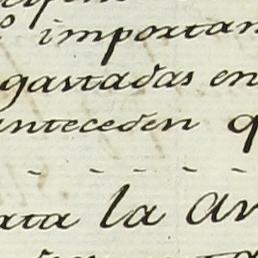 importan
gastadas en
anteceden q
ata la ar